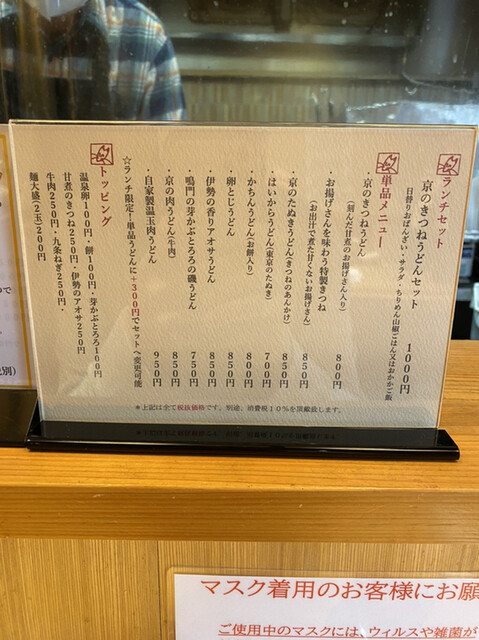 ランチセット
京のきつねうどんセット　1000円
日替りおばんざい・サラダ・ちりめん山椒ごはん又はおかかご飯
単品メニュー
・京のきつねうどん　800円
(刻んだ甘煮のお揚げさん入り)
・お揚げさんを味わう特製きつね　850円
(お出汁で煮た甘くないお揚げさん)
・京のたぬきうどん(きつねのあんかけ)　850円
・はいからうどん(東京のたぬき)　700円
・かちんうどん(お餅入り)　800円
・卵とじうどん　850円
・伊勢の香りアオサうどん　850円
・鳴門の芽かぶとろろの磯うどん　750円
・京の肉うどん(牛肉)　850円
・自家製温玉肉うどん　950円
☆ランチ限定!単品うどんに+300円でセットへ変更可能
トッピング
温泉卵100円・餅100円・芽かぶとろろ100円
甘煮のきつね250円・伊勢のアオサ250円
牛肉250円・九条ねぎ250円・
麺大盛(2玉)200円
＊上記は全て税抜価格です。別途、消費税10％を頂戴致します。
マスク着用のお客様にお願
ご使用中のマスクには、ウィルスや雑菌が